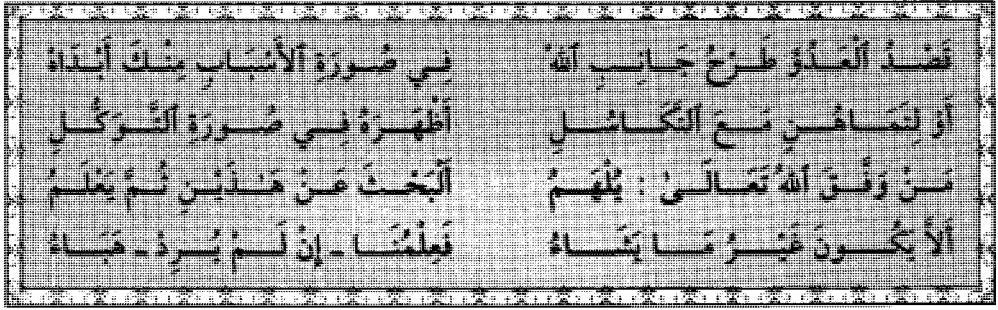 قَصْدُ ٱلْعَدُوِّ طَرْحُ جَانِبِ ٱللهْ فِي صُورَةِ ٱلأَسْبَابِ مِنْكَ أَبْدَاهْ
أَوْ لِتَمَاهُنٍ مَعَ ٱلتَّكَاسُلِ أَظْهَرَهُ فِي صُورَةِ ٱلتَّوَكُّلِ
مَنْ وَفَّقَ ٱللهُ تَعَالَىٰ : يُلْهَمُ ٱلْبَحْثَ عَنْ هَـٰذَيْنِ ثُمَّ يَعْلَمُ
أَلاَّ يَكُونَ غَيْرُ مَا يَشَاءُ فَعِلْمُنَا - إِنْ لَمْ يُرِدْ - هَبَاءُ